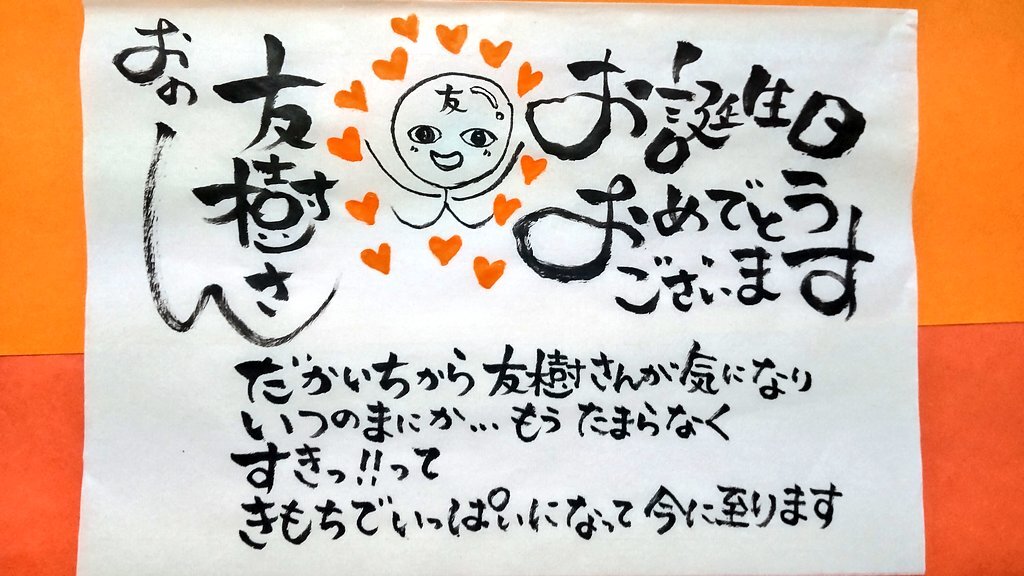 お誕生日
おめでとう
ございます
おの
友樹さん
友
だかいちから友樹さんが気になり
いつのまにか...もうたまらなく
すきっ!!って
きもちでいっぱいになって今に至ります